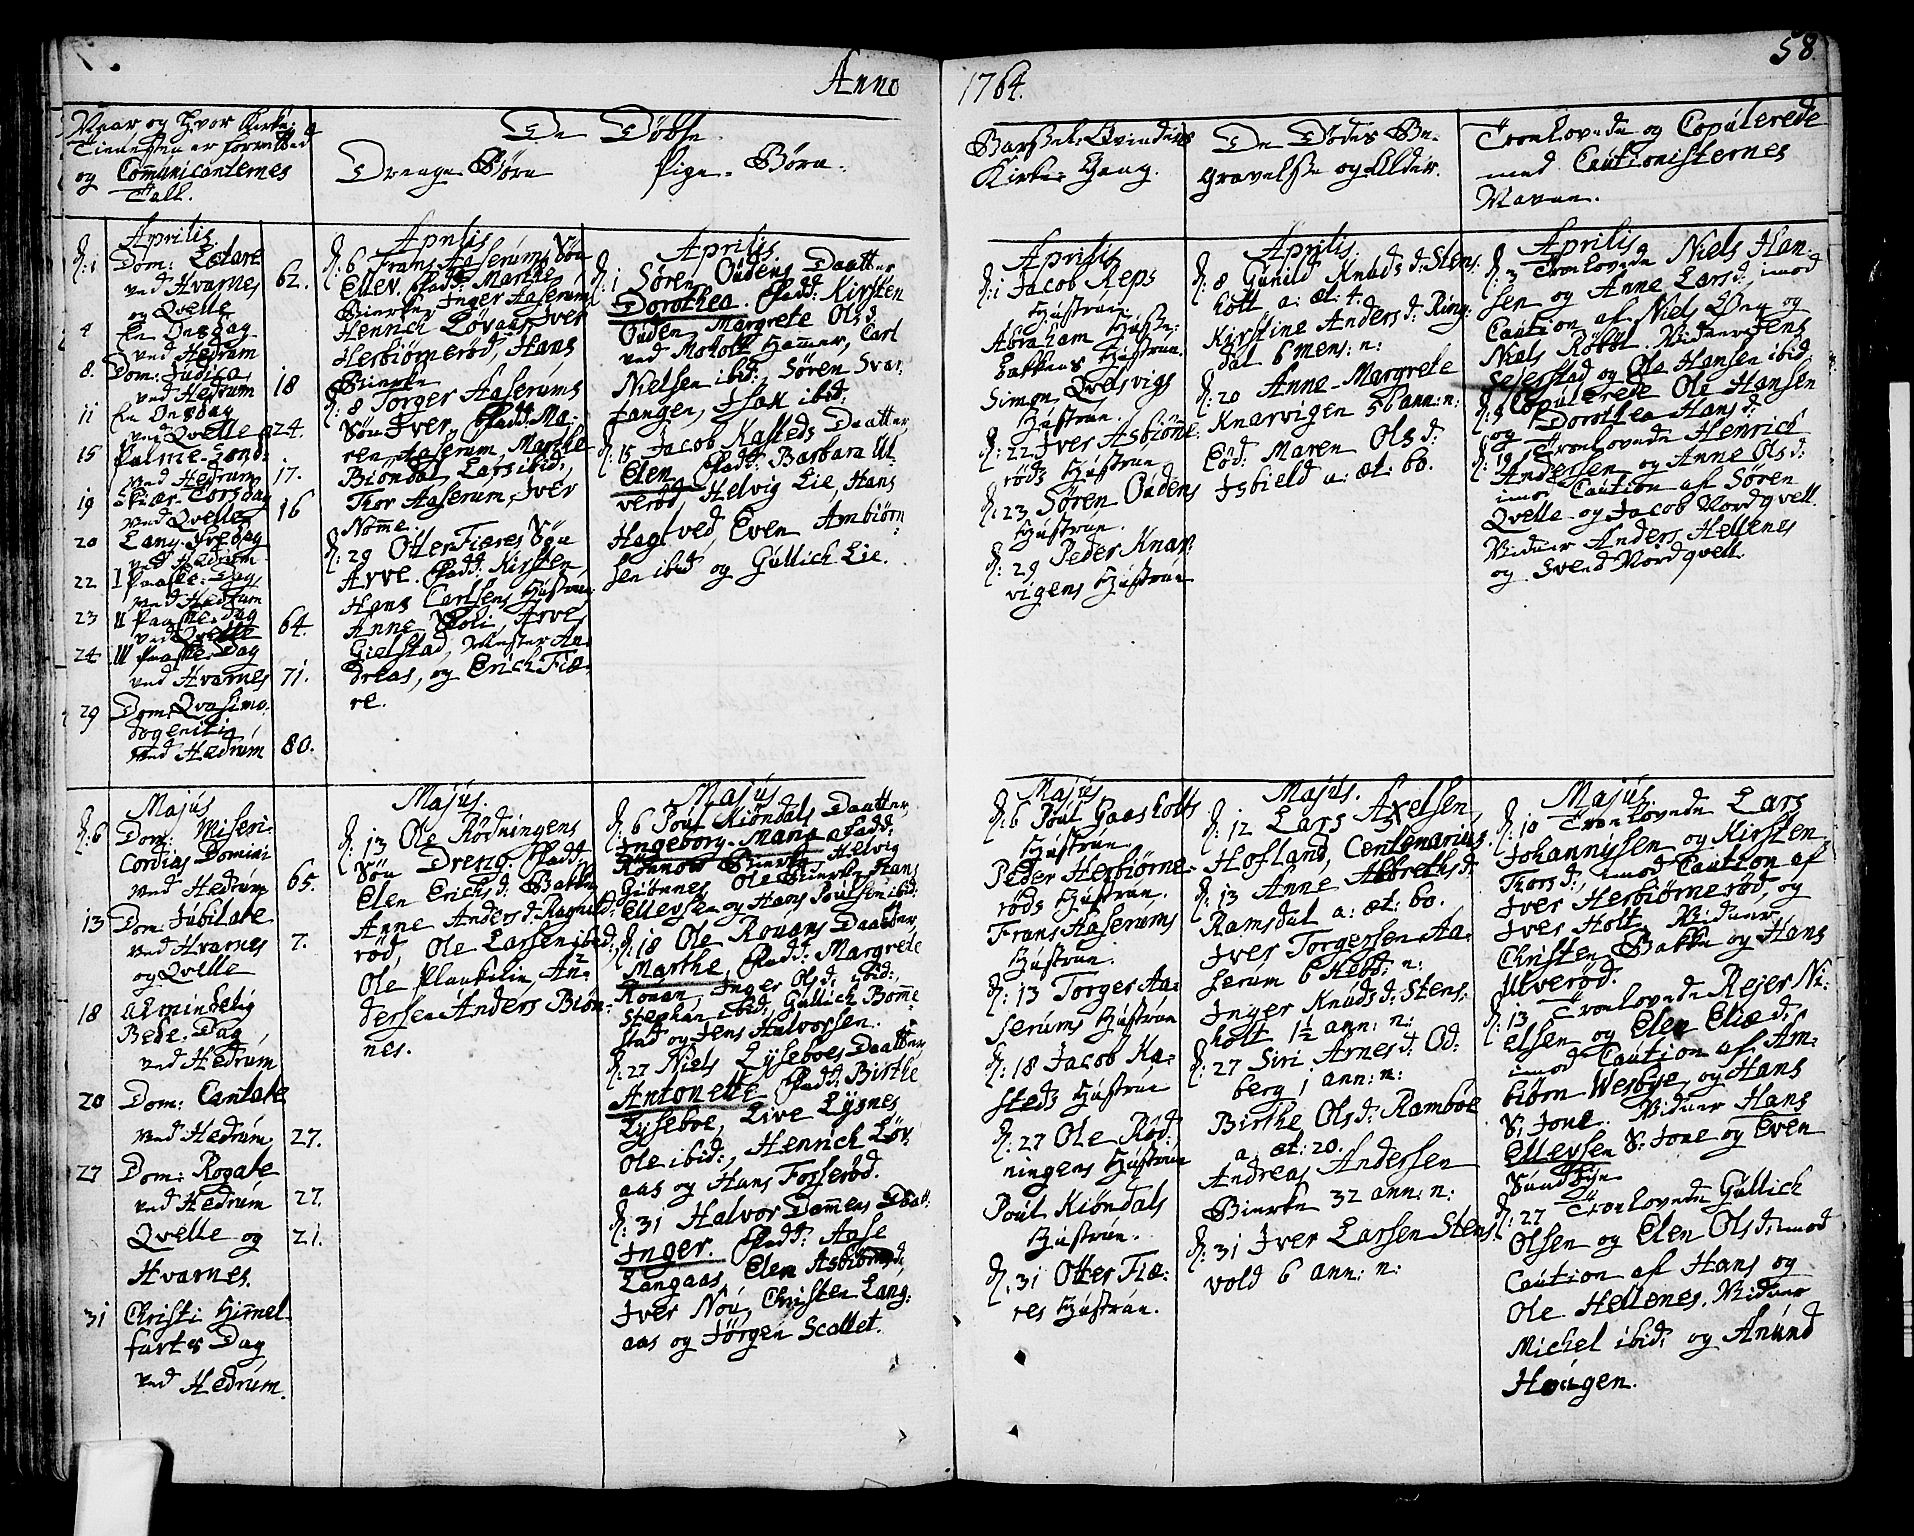 Anno 1764.
58.
Naar og hvor Kirke-
Tienesten er forretted
og Communicanternes
Tall.
De Døbte
Drenge-Børn
Pige-Børn.
Barsel-Qvinders
Kirke-Gang.
De Dødes Be-
gravelse og Alder.
Troelovede og Copulerede
med Cautionisternes
Navne.
Aprilis
d: 1 Dom: Lætare
ved Hvarnes 62.
og Qvelle
4 En Onsdag
ved Hedrum
8. Dom: Judica,
ved Hedrum 18
11 En Onsdag
ved Qvelle 24.
15 Palme-Sønd:
ved Hedrum 17.
19 Skiær-Torsdag
ved Qvelle 16
20 Lang-Fredag
ved Hedrum
22 I Paaske-Dag,
ved Hedrum
23 II Paaske-Dag
ved Qvelle 64.
24 III Paaske-Dag
ved Hvarnes 71.
29 Dom: Qvasimo-
dogeniti,
ved Hedrum 80.
Aprilis
d: 6 Frans Aaserums Søn
Ellev. Fadd: Marthe
Bierke, Inger Aaserum
Henrich Løvaas, Iver
Herbiørnerød, Hans
Bierke
d: 8 Torger Aaserums
Søn Iver, Fadd: Ma-
ren Aaserum, Marthe
Biøndal, Lars ibid:,
Thor Aaserum, Iver
Nomme.
d: 29 Otter Fiæres Søn
Arve. Fadd: Kirsten,
Hans Carlsens Hustrue,
Anne Foli, Arve
Gielstad, Mester An-
dreas, og Erich Fiæ-
re.
Aprilis
d: 1 Søren Oudens Daatter
Dorothea. Fadd: Kirsten
Ouden, Margrete Olsd:
ved Moholt Hammer, Carl
Nielsen ibid: Søren Svar-
tangen, Isak ibid:
d: 15 Jacob Kasteds Daatter
Elen. Fadd: Barbara Ut-
verød, Helvig Lie, Hans
Hagtved, Even Ambiørn
sen ibid og Gullich Lie.
Aprilis
d: 1 Jacob Reps
Hustrue
Abraham
Bakkens Hustrue.
Simon Qvelsvigs
Hustrue.
d: 22 Iver Asbiørne-
røds Hustrue
d: 23 Søren Oudens
Hustrue.
d: 29 Peder Knar-
vigens Hustrue
Aprilis
d: 8 Gunild Knudsd: Stens-
holt a: æt: 4.
Kirstine Andersd: Ring-
dal 6 mens: n:
d: 20 Anne-Margrete
Knarvigen 56 ann: n:
Eod: Maren Olsd:
Isbield a: æt: 60.
Aprilis
d: 3 Troelovede Niels Han-
sen og Anne Larsd: imod
Caution af Niels Øen og
Niels Røbøl. Vidner Jens
Seierstad og Ole Hansen ibid
d: 5 Copulerede Ole Hansen
og Dorothea Hansd:
d: 19 Troelovede Henrich
Andersen og Anne Olsd:
imod Caution af Søren
Qvelle og Jacob Nordqvell
Vidner Anders Hellenes
og Svend Nordqvell.
Majus
d: 6 Dom: Miseri-
cordias Domini
ved Hedrum 65.
13 Dom: Jubilate
ved Hvarnes 7.
og Qvelle
18 Almindelig
Bede-Dag
ved Hedrum
20 Dom: Cantate
ved Hedrum 27.
27 Dom: Rogate
ved Hedrum 27.
Qvelle og 21.
Hvarnes.
31 Christi Himmel-
farts Dag
ved Hedrum.
Majus.
d: 13 Ole Rødningens
Søn Dreng. Fadd:
Elen Erichsd: Bakke,
Anne Andersd: Ragnild-
rød, Ole Larsen ibid,
Ole Plankelin, An-
dersen Anders Biøn-
nes.
Majus
d: 6 Poul Kiøndals Daatter,
Ingeborg-Maria. Fadd:
Rønnow Bierke, Helvig
Giønnes, Ole Bierke, Hans
Ellevsen og Hans Poulsen ibid:
d: 18 Ole Rouans Daatter
Marthe, Fadd: Margrete
Rouan, Inger Olsd: ibid:,
Stephan ibid: Gullich Bomme
stad og Jens Halvorsen.
d: 27 Niels Lyseboes Daatter
Antonette. Fadd: Birthe
Lyseboe, Live Lysnes
Ole ibid:, Henrich Løv-
aas og Hans Fosserød.
d: 31 Halvor Dammens Daatt:
Inger. Fadd: Aase
Langaas, Elen Asbiørnsd,
Iver Nou, Christen Lang-
aas og Jørgen Scallet.
Majus
d: 6 Poul Gaasholts
Hustrue.
Peder Herbiørne-
røds Hustrue.
Frans Aaserums
Hustrue.
d: 13 Torger Aa-
serums Hustrue
d: 18 Jacob Ka-
steds Hustrue
d: 27 Ole Rød-
ningens Hustrue
Poul Kiøndals
Hustrue.
d: 31 Otter Fiæ-
res Hustrue.
Majus.
d: 12 Lars Axelsen,
Hofland, Centenarius.
d: 13 Anne Albretsd:
Ramsdal a: æt: 60.
Iver Torgersen Aa-
serum 6 Hebd: n:
Inger Knudsd: Stens-
holt 1½ ann: n:
d: 27 Siri Arnesd: Od-
berg 1 ann: n:
Birthe Olsd: Ramboe
a: æt: 20.
Andreas Andersen
Bierke 32 ann: n:
d: 31 Iver Larsen Stens
vold 6 ann: n:
Majus
d: 10 Troelovede Lars
Johannissen og Kirsten
Thorsd:, imod Caution af
Iver Herbiørnerød, og
Iver Holt. Vidner
Christen Bakke og Hans
Utverød.
d: 13 Troelovede Rejer Ni-
elsen og Elen Eliæd:
imod Caution af Am-
biørn Wesbye, og Hans
S: Jone. Vidner Hans
Ellevsen S: Jone og Even
Sundbye
d: 27 Troelovede Gullich
Olsen og Elen Olsd: imod
Caution af Hans og
Ole Hellenes. Vidner
Michel ibid: og Anund
Hougen.